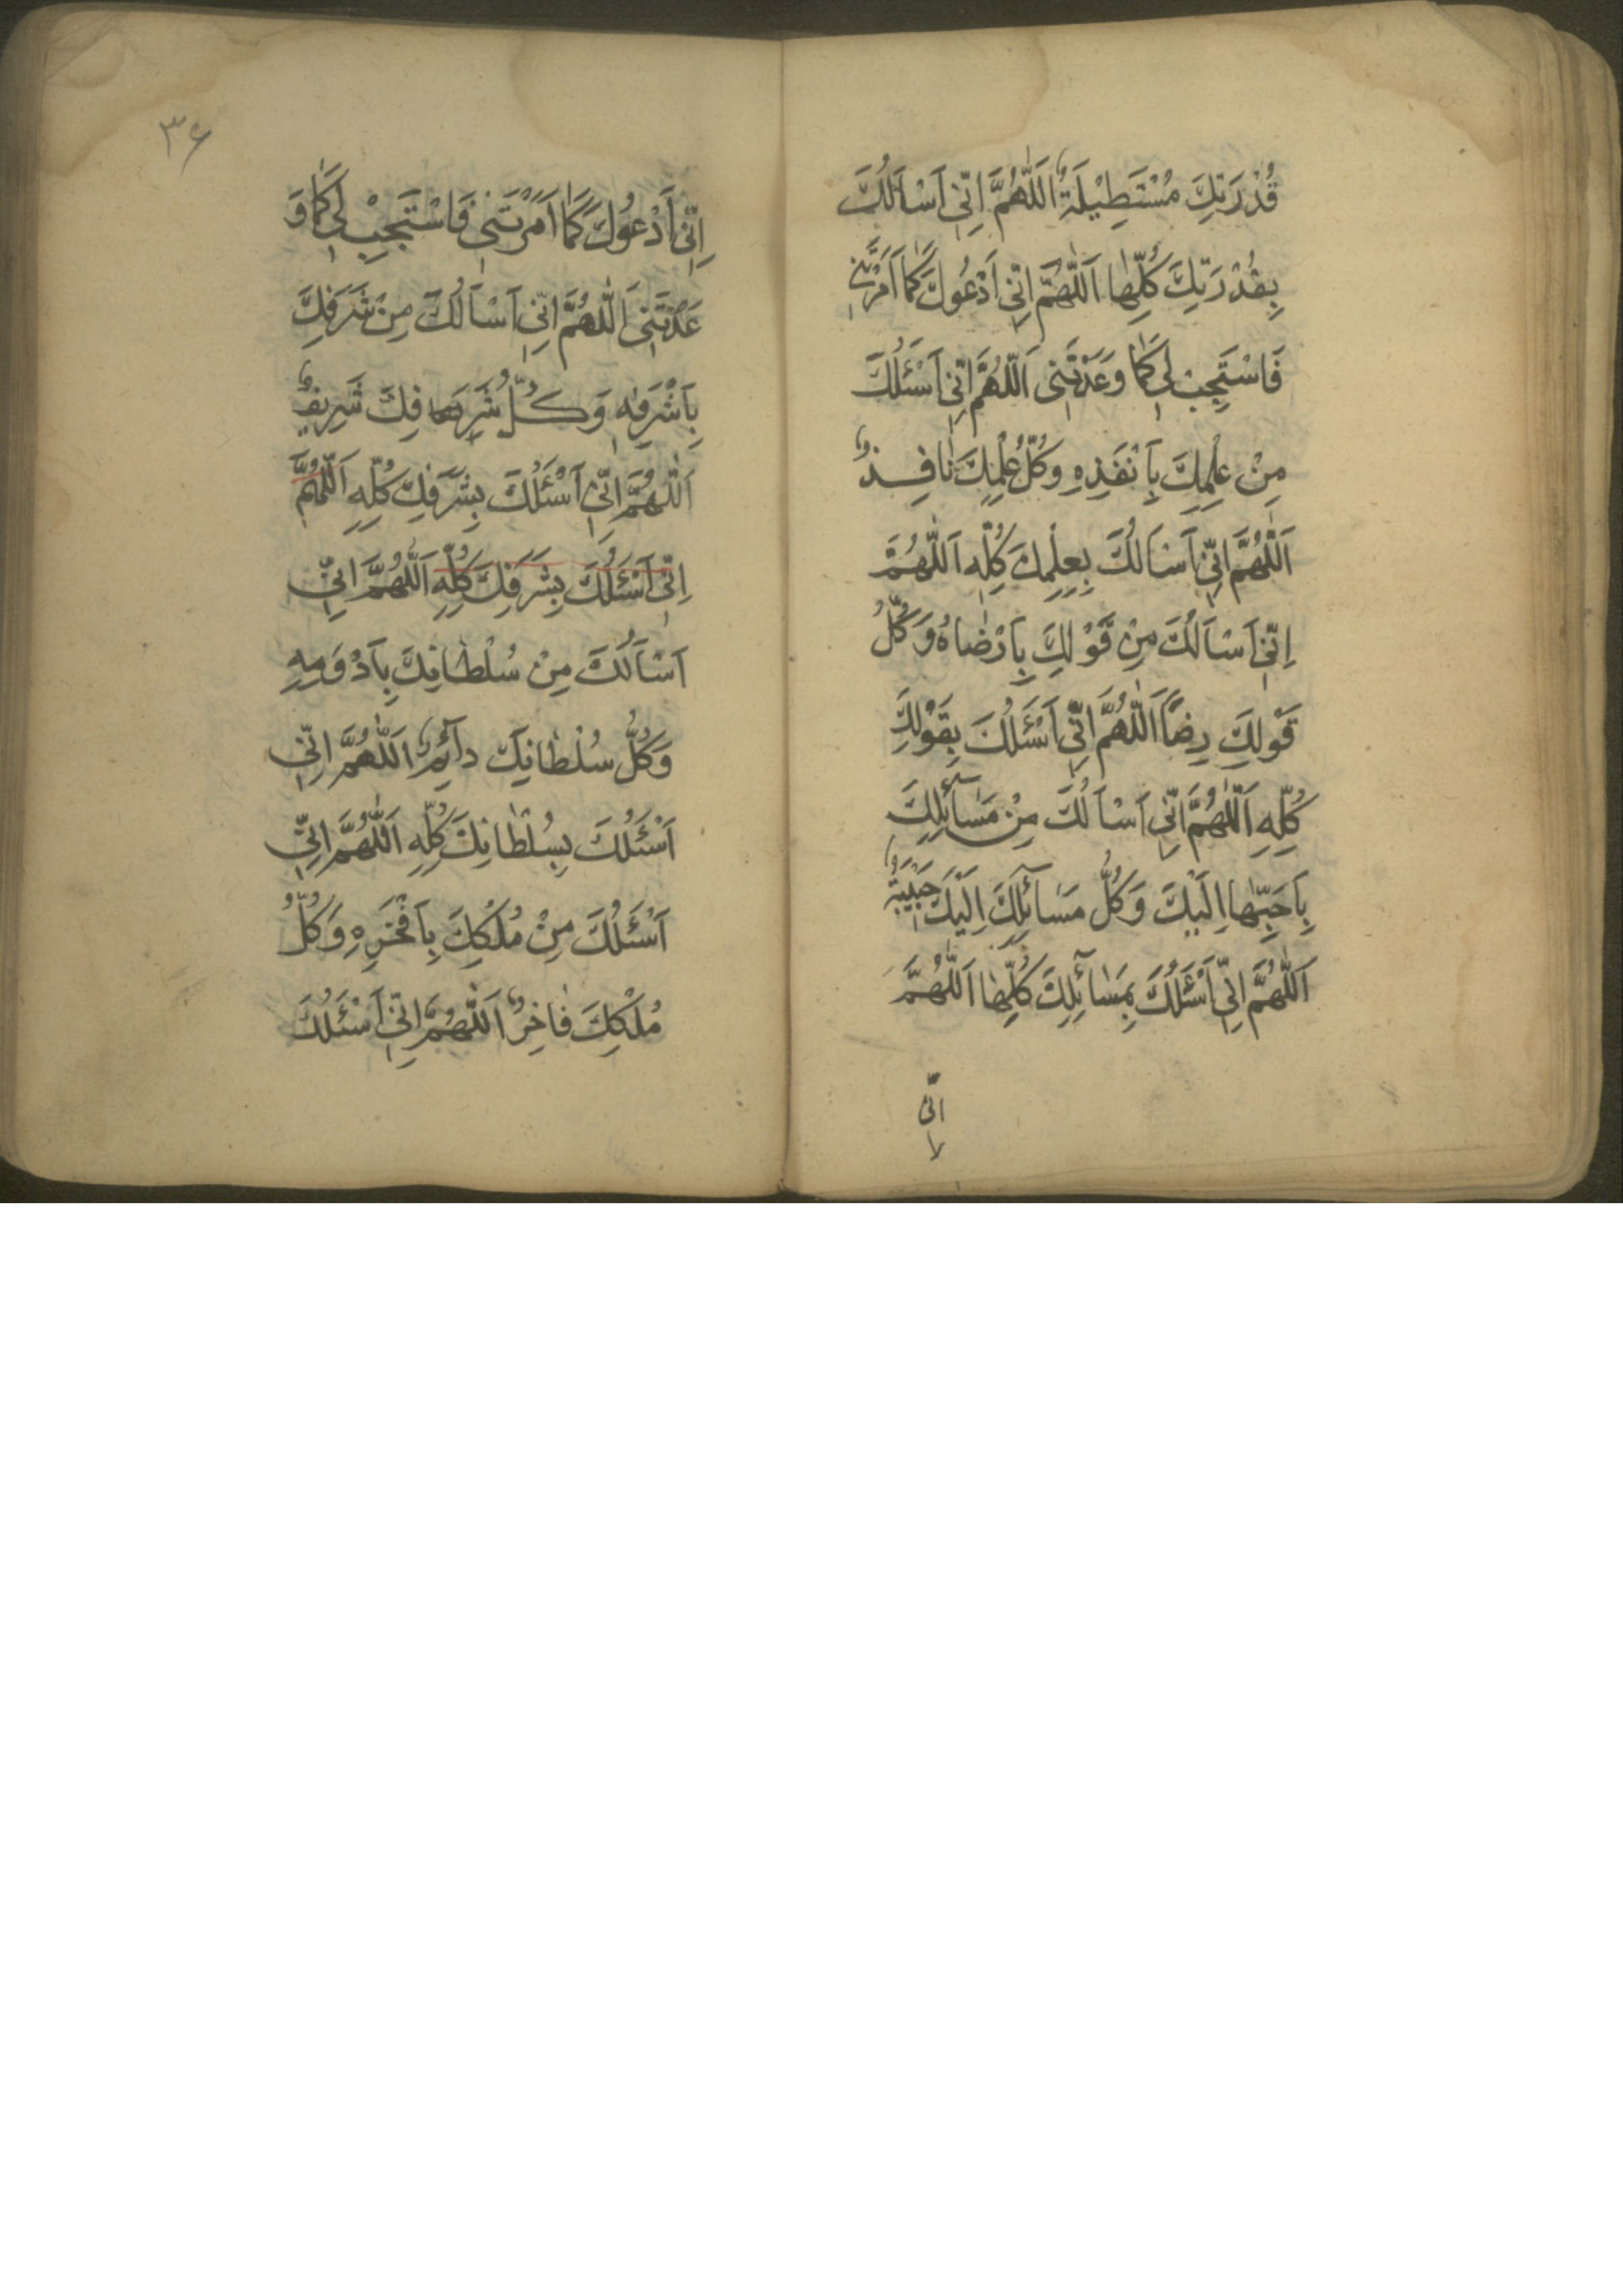 قُدْرَتِكَ مُسْتَطِيْلَةٌ اَللّٰهُمَّ اِنّٖي اَسْاَلُكَ
بِقُدْرَتِكَ كُلِّهٰا اَللّٰهُمَّ اِنّٖي اَدْعُوكَ كَمٰا اَمَرْتَنٖي
فَاسْتَجِبْ لٖي كَمٰا وَعَدْتَنٖي اَللّٰهُمَّ اِنّٖي اَسْئَلُكَ
مِنْ عِلْمِكَ بِاَنْفَذِهِ وَكُلُّ عِلْمِكَ نٰافِذٌ
اَللّٰهُمَّ اِنّٖي اَسْاَلُكَ بِعِلْمِكَ كُلِّهِ اَللّٰهُمَّ
اِنّٖي اَسْاَلُكَ مِنْ قَوْلِكَ بِاَرْضٰاهُ وَكُلُّ
قَوْلِكَ رِضًا اَللّٰهُمَّ اِنّٖي اَسْئَلُكَ بِقَوْلِكَ
كُلِّهِ اَللّٰهُمَّ اِنّٖي اَسْاَلُكَ مِنْ مَسٰآئِلِكَ
بِاَحَبِّهٰا اِلَيْكَ وَكُلُّ مَسٰآئِلِكَ اِلَيْكَ حَبٖيبَةٌ
اَللّٰهُمَّ اِنّٖي اَسْئَلُكَ بِمَسٰآئِلِكَ كُلِّهٰا اَللّٰهُمَّ
انّی
۳۶
اِنّٖي اَدْعُوكَ كَمٰا اَمَرْتَنٖي فَاسْتَجِبْ لٖي كَمٰا وَ
عَدْتَنٖي اَللّٰهُمَّ اِنّٖي اَسْاَلُكَ مِنْ شَرَفِكَ
بِاَشْرَفِهٖ وَكُلُّ شَرَفِكَ شَرٖيفٌ
اَللّٰهُمَّ اِنّٖي اَسْئَلُكَ بِشَرَفِكَ كُلِّهِ اَللّٰهُمَّ
اِنّٖي اَسْئَلُكَ بِشَرَفِكَ كُلِّهِ اَللّٰهُمَّ اِنّٖي
اَسْاَلُكَ مِنْ سُلْطٰانِكَ بِاَدْوَمِهِ
وَكُلُّ سُلْطٰانِكَ دآئِمٌ اَللّٰهُمَّ اِنّٖي
اَسْئَلُكَ بِسُلْطٰانِكَ كُلِّهِ اَللّٰهُمَّ اِنّٖي
اَسْئَلُكَ مِنْ مُلْكِكَ بِاَفْخَرِهِ وَكُلُّ
مُلْكِكَ فٰاخِرٌ اَللّٰهُمَّ اِنّٖي اَسْئَلُكَ